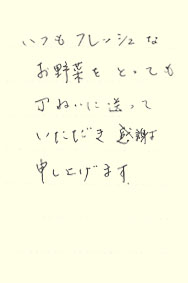 いつもフレッシュな
お野菜をとっても
丁ねいに送って
いただき感謝
申し上げます